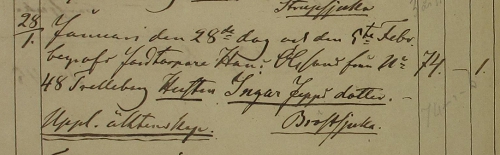 Strupsjuka
28/1. Januari den 28de dag och den 5te Febr.
begrofs Jordtorpare Hans Olssons från No 74. – 1.
48 Trelleborg Hustru Ingar Jeppsdotter.
Uppl. äktenskap. Bröstsjuka.